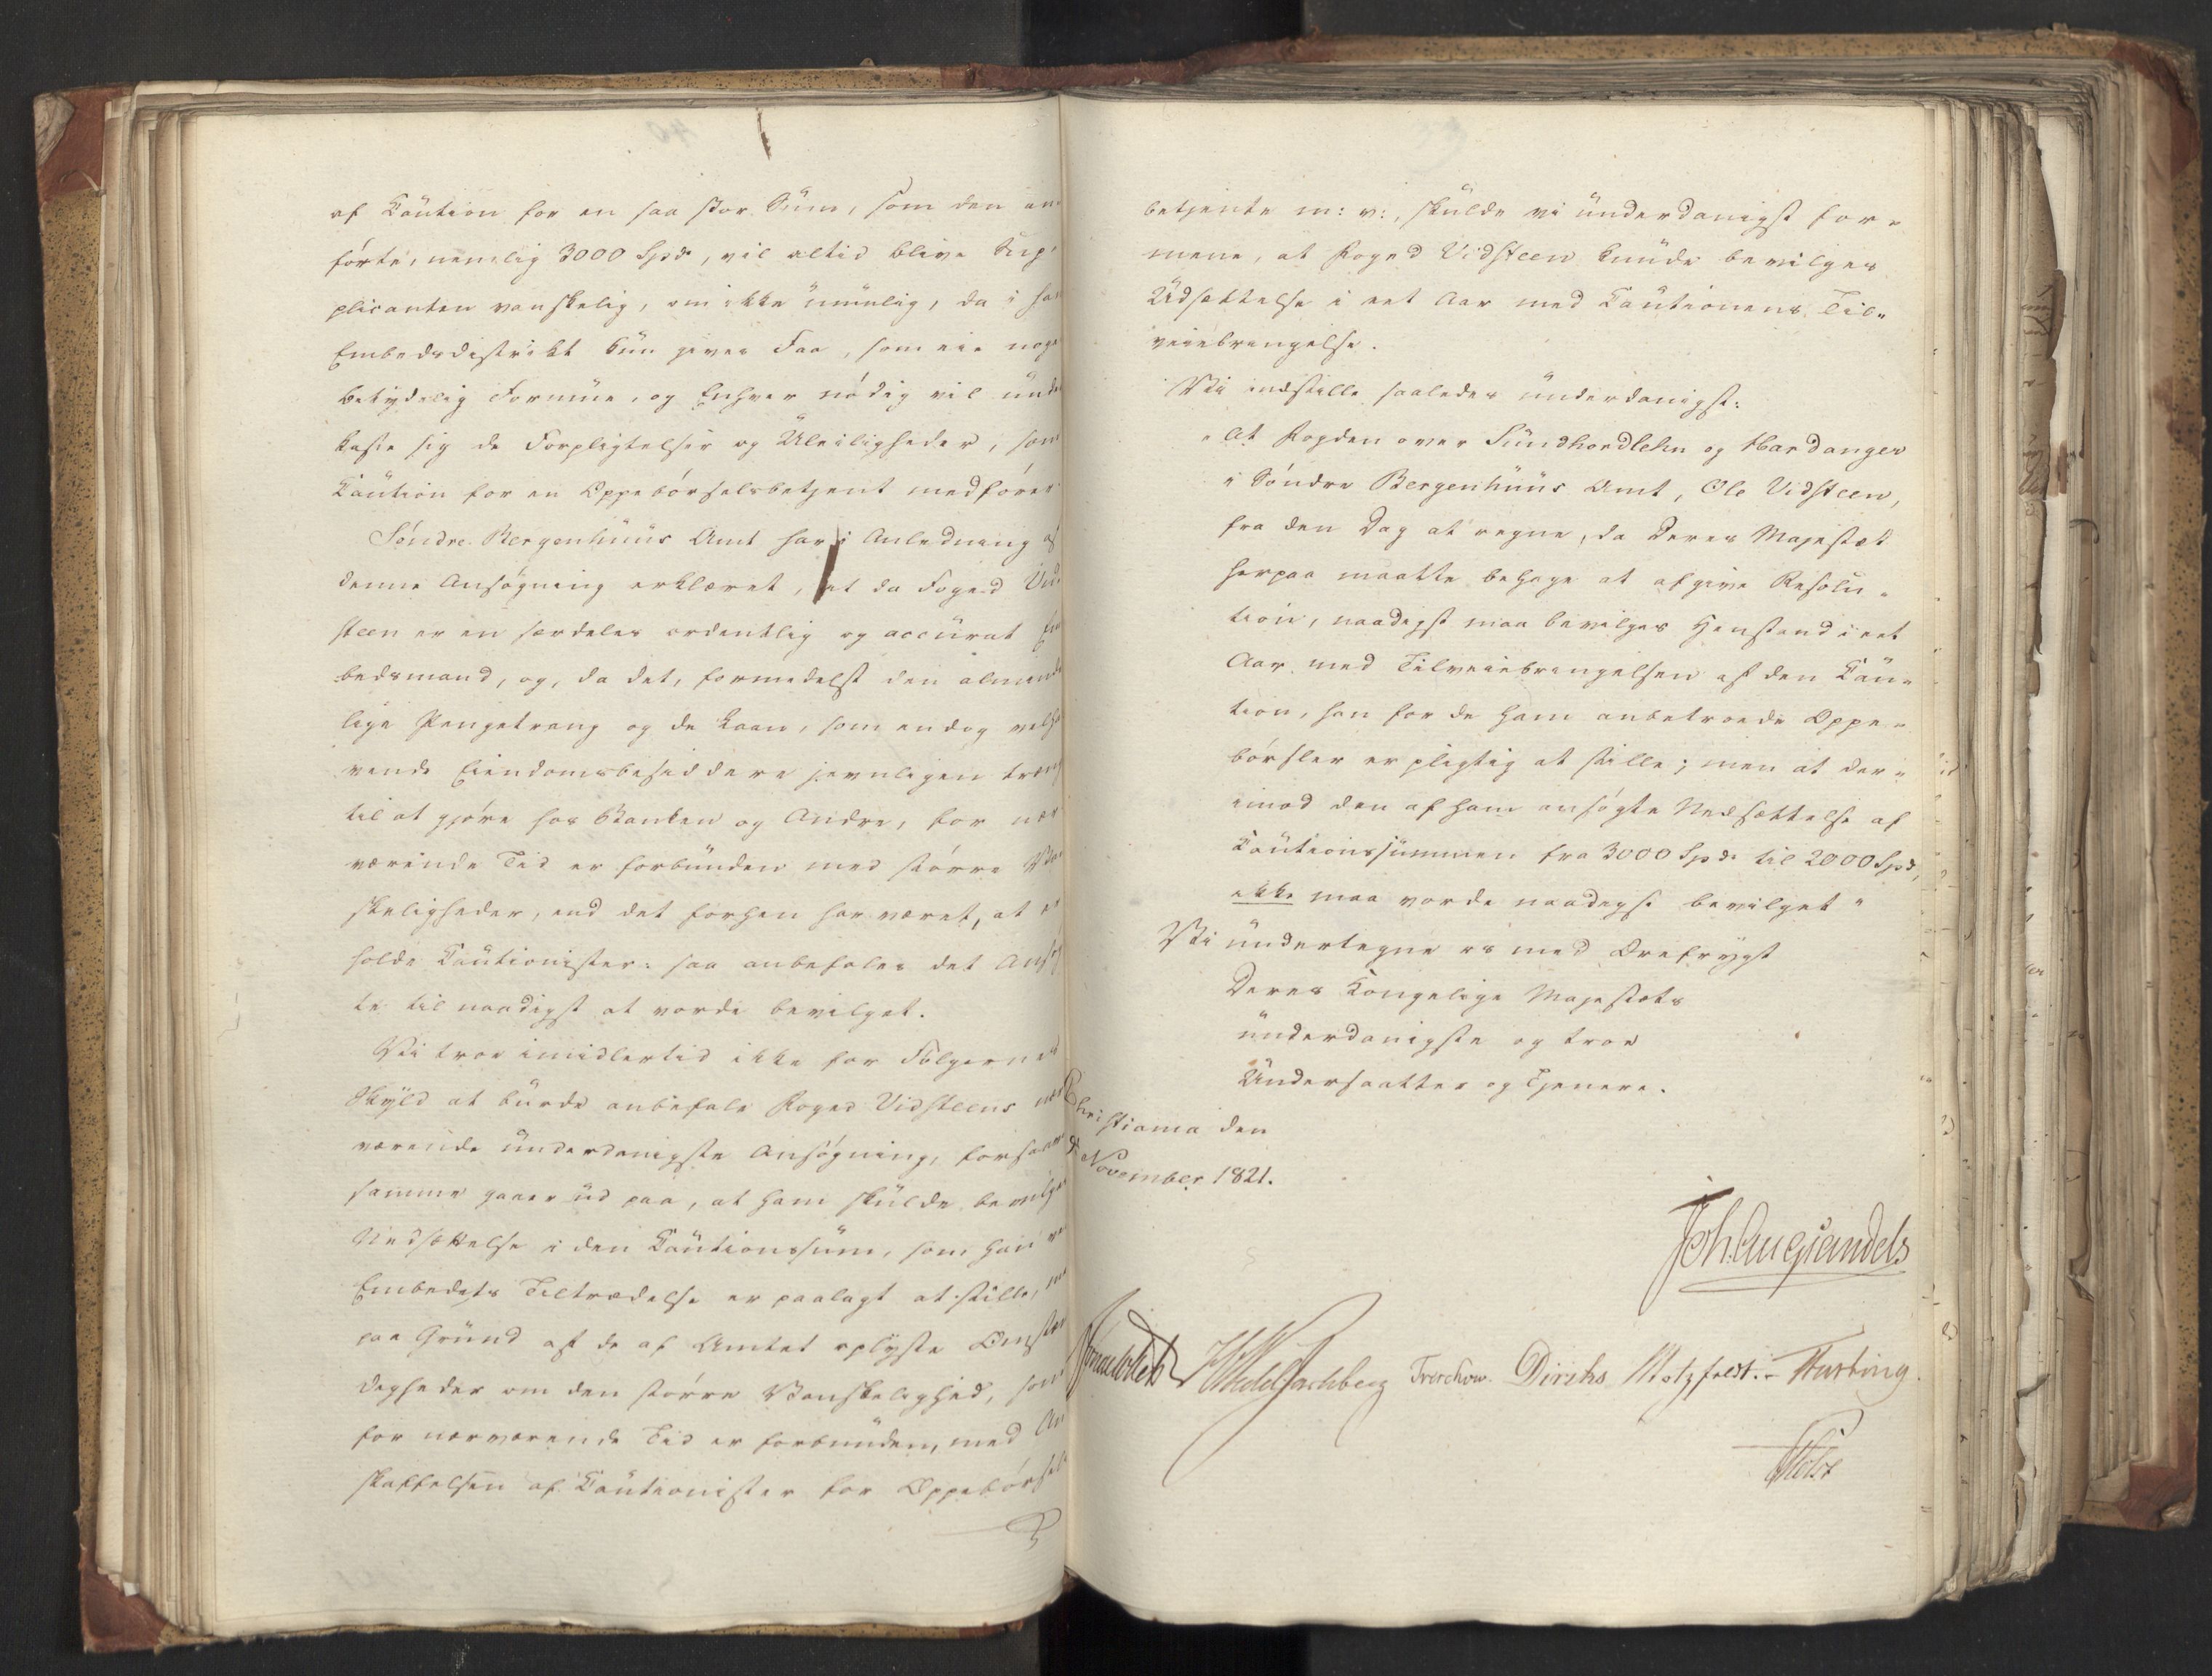 af Caution for en saa stor Sum, som den an-
førte, nemlig 3000 Spd, vil altid blive Sup-
plicanten vanskelig, om ikke umulig, da i hans
Embedsdistrikt kun gives Faa, som eie noget
betydelig Formue, og Enhver nødig vil under-
kaste sig de Forpligtelser og Uleiligheder, som
Caution for en Oppebørselsbetjent medfører.
Søndre Bergenhuus Amt har i Anledning af
denne Ansøgning erklæret, at da Foged Vid-
steen er en særdeles ordentlig og accurat Em-
bedsmand, og, da det, formedelst den alminde-
lige Pengetrang og de Laan, som endog velha-
vende Eiendomsbesiddere jevnligen trænge
til at gjøre hos Banken og Andre, for nær-
værende Tid er forbunden med større Van-
skeligheder, end det forhen har været, at er-
holde Cautionister: saa anbefales det Ansøg-
te til naadigst at vorde bevilget.
Vii troe imidlertid ikke for Følgernes
Skyld at burde anbefale Foged Vidsteens nær-
værende underdanigste Ansøgning, forsaavidt
samme gaaer ud paa, at ham skulde bevilges
Nedsættelse i den Cautionssum, som han ved
Embedets Tiltrædelse er paalagt at stille, men
paa Grund af de af Amtet oplyste Omstæn-
digheder om den større Vanskelighed, som
for nærværende Tid er forbunden med An-
skaffelsen af Cautionister for Oppebørsels-
betjente m: v:, skulde vi underdanigst for-
mene, at Foged Vidsteen kunde bevilges
Udsættelse i eet Aar med Cautionens Til-
veiebringelse.
Vii indstille saaledes underdanigst:
"At Fogden over Sundhordlehn og Hardanger
i Søndre Bergenhuus Amt, Ole Vidsteen,
fra den Dag at regne, da Deres Majestæt
herpaa maatte behage at afgive Resolu-
tion, naadigst maa bevilges Henstand i eet
Aar med Tilveiebringelsen af den Cau-
tion, han for de ham anbetroede Oppe-
børsler er pligtig at stille; men at der-
imod den af ham ansøgte Nedsættelse af
Cautionssummen fra 3000 Spd til 2000 Spd,
ikke maa vorde naadigst bevilget"
Vi undertegne os med Ærefrygt
Deres Kongelige Majestæts
underdanigste og troe
Undersaatter og Tjenere.
Christiania den
November 1821.
Joh. Aug Sandels
Treschow. Diriks Motzfeldt. Fasting.
Holst